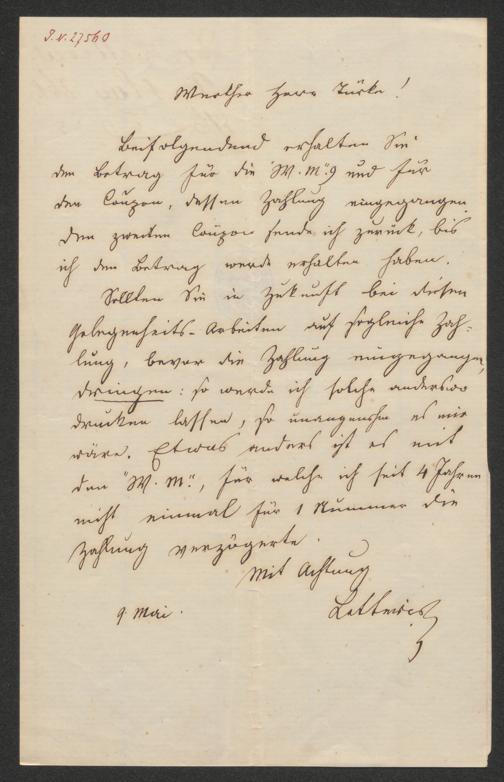 I.N. 27560
Werther Herr Türke!
Beifolgendend erhalten Sie
den Betrag für die "W. M." 9 und für
den Coupon, dessen Zahlung eingegangen.
Den zweiten Coupon sende ich zurück, bis
ich den Betrag werde erhalten haben.
Sollten Sie in Zukunft bei diesen
Gelegenheits-Arbeiten auf sogleiche Zah=
lung, bevor die Zahlung eingegangen,
dringen: so werde ich solche anderswo
drucken lassen, so unangenehm es mir
wäre. Etwas anders ist es mit
den "W. M.", für welche ich seit 4 Jahren
nicht einmal für 1 Nummer die
Zahlung verzögerte.
Mit Achtung
9 Mai.